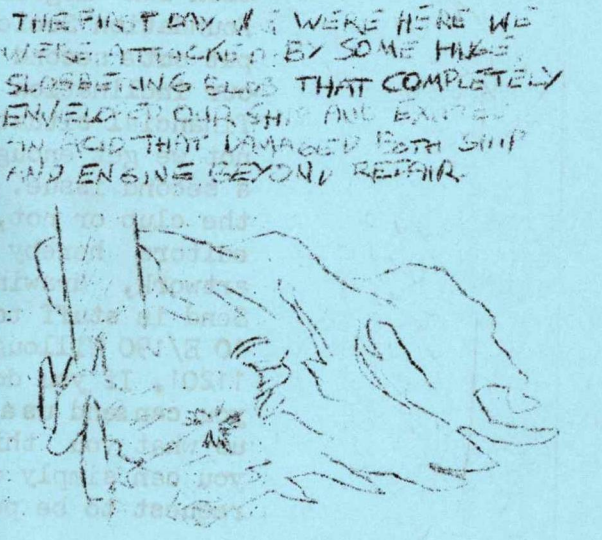 THE FIRST DAY WE WERE HERE WE
WERE ATTACKED BY SOME HUGE
SLOBBERING BLOB THAT COMPLETELY
ENVELOPED OUR SHIP AND
AN ACID THAT DAMAGED BOTH SHIP
AND ENGINE BEYOND REPAIR.